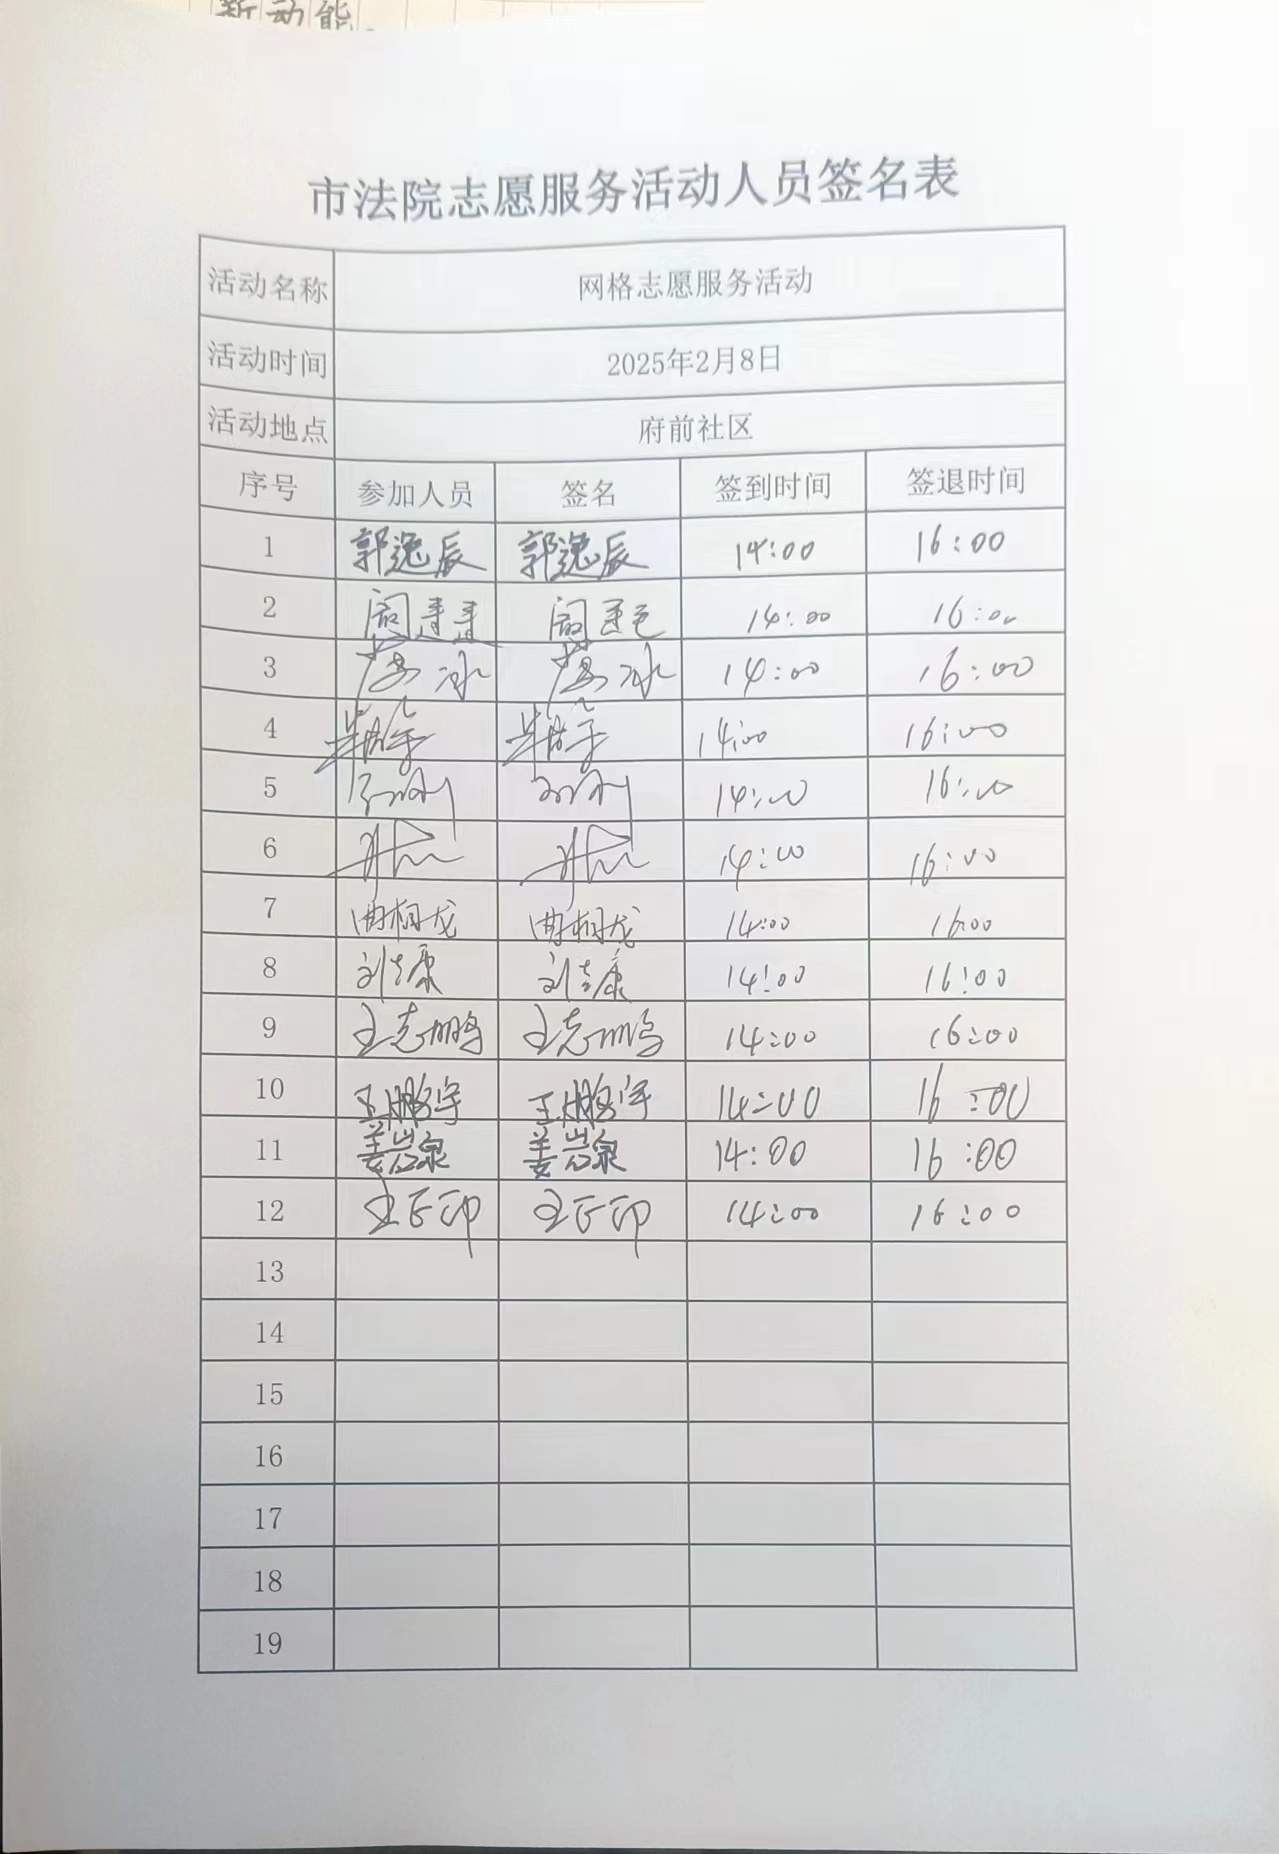 新动能
市法院志愿服务活动人员签名表
活动名称 网格志愿服务活动
活动时间 2025年2月8日
活动地点 府前社区
序号 参加人员 签名 签到时间 签退时间
1 郭逸辰 郭逸辰 14:00 16:00
2 14:00 16:00
3 14:00 16:00
4 14:00 16:00
5 14:00 16:00
6 14:00 16:00
7 曲桐龙 曲桐龙 14:00 16:00
8 刘志康 刘志康 14:00 16:00
9 王志鹏 王志鹏 14:00 16:00
10 王鹏宇 王鹏宇 14:00 16:00
11 姜岩泉 姜岩泉 14:00 16:00
12 王正印 王正印 14:00 16:00
13
14
15
16
17
18
19